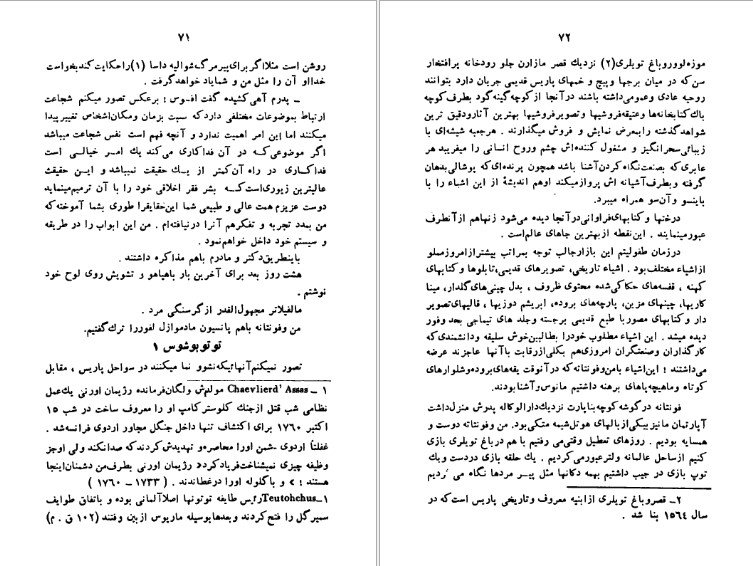 ۷۱
روشن است مثلا اگر برای پیر مرگ شوالیه داسا (۱) را حکایت کند بخواست
خدا او آن را مثل من و شما یاد خواهد گرفت .
ـ پدرم آهی کشیده گفت افسوس : برعکس تصور میکنم شجاعت
ارتباط بموضوعات مختلفی دارد که نسبت بزمان ومکان اشخاص تغییر پیدا
میکنند اما این امر اهمیت ندارد و آنچه فهم است نفس شجاعت میباشد
اگر موضوعی کـه در آن فداکاری می‌کند یك امر خیالی است
فداکـاری در راه آن کمتر از یـك حقیقت نمیباشد و ایـن حقیقت
عالیترین زیوری است کـه بشر فقر اخلاقی خود را با آن ترمیم مینماید
دوست عزیزم همت عالی و طبیعی شما این حقایق را طوری بشما آموخته که
من بعدد تجربه و تفکر هم آنرا دریافته‌ام . من این ابواب را در طریقه
و سیستم خود داخل خواهم نمود .
باینطریق دکتر و مادرم باهم مذاکره داشتند .
هشت روز بعد برای آخرین بار باهیاهو و تشویش روی لوح خود
نوشتم .
مالفیلاتر مجهول القدر از گرسنگی مرد .
من وفونتانه باهم پانسیون مادموازل لفور را ترك گفتیم.
توتوبوشوس ۱
تصور نمیکنم آنهائیکه نشوو نما میکنند در سواحل پاریس ، مقابل
۱ ـ Chaevlierd' Assas مولدش ولگان فرمانده رژیمان اورنی یك عمل
نظامی شب قتل از جنك کلوستر کامپ او را معروف ساخت در شب ۱۵
اکتبر ۱۷۶۰ برای اکتشاف تنها داخل جنگل مجاور اردوی فرانسه شد .
غفلتاً اردوی ـ شمن اورا محاصره و تهدیدش کردند که صدا نکند ولی اوجز
وظیفه چیزی نمیشناخت فریاد کرد « رژیمان اورنی بطرف من دشمنان اینجا
هستند ؛ » و با گلوله اورا در غلطاندند . ( ۱۷۳۳ – ۱۷۶۰ )
۱ـ Teutohchus رئیس طایفه توتونها اصلا آلمانی بوده و باتفاق طوایف
سمبر گل را فتح کردند و بعدها بوسیله ماریوس از بین رفتند (۱۰۲ ق . م)
۷۲
موزه لوور و باغ تویلری (۲) نزدیك قصر مازارن جلو رودخانه پر افتخار
سن که در میان برجها و پیچ و خمهای پاریس قدیمی جریان دارد بتوانند
روحیه عادی و عمومی داشته باشند در آنجا از کوچه گینه گود بطرف کوچه
باك کتابخانه‌ها و عتیقه فروشیها و تصویر فروشیها بهترین آثار و دقیق ترین
شواهد گذشته را بمعرض نمایش و فروش میگذارند . هر جعبه شیشه‌ای با
زیبائی سحر انگیز و مشغول کننده‌اش چشم وروح انسانی را میفریبد هر
عابری که بصنعت نگاه کردن آشنا باشد همچون پرنده‌ای که پوشالی بدهان
گرفته و بطرف آشیانه اش پرواز میکند او هم اندیشهٔ از این اشیاء را با
باینسو و آن سو همراه میبرد.
درختها و کتابهای فراوانی در آنجا دیده می‌شود زنها هم از آنطرف
عبور مینمایند . این نقطه از بهترین جاهای عالم است .
در زمان طفولیتم این بازار جالب توجه بمراتب بیشتر از امروز مملو
از اشیاء مختلف بود . اشیاء تاریخی، تصویرهای قدیمی، تابلوها و کتابهای
کهنه ، قفسه‌های حکاکی شده محتوی ظروف ، بدل چینی‌های گلدار، مینا
کاریها، چینهای مزین، پارچه‌های بروده، ابریشم دوزیها ، قالیهای تصویر
دار و کتابهای مصور با طبع قدیمی برجسته وجلد های تیماجی بحد وفور
دیده میشد . این اشیاء مطلوب خود را بطالبین خوش سلیقه و دانشمندی که
کار گذاران و صنعتگران امروزی هم بکلی از رقابت با آنها عاجزند عرضه
می‌داشتند ؛ این اشیاء بامن وفونتانه که در آنوقت یقه‌های بروده وشلوارهای
کوتاه و ماهیچه پاهای برهنه داشتیم مانوس و آشنا بودند.
فونتانه در گوشه کوچه بناپارت نزدیك دارالوکاله پدرش منزل داشت
آپارتمان ما نیز بیکی از بالهای هوتل شیمه متکی بود. من وفونتانه دوست و
همسایه بودیم . روزهای تعطیل وقتی می رفتیم با هم در باغ تویلری بازی
کنیم از ساحل عالمانه ولتر عبور می کردیم . یك حلقه بازی در دست و یك
توپ بازی در جیب داشتیم بهمه دکانها مثل پیر مردها نگاه می کردیم
۲ـ قصر و باغ تویلری از ابنیه معروف و تاریخی پاریس است که در
سال ۱۵۶۴ بنا شد .